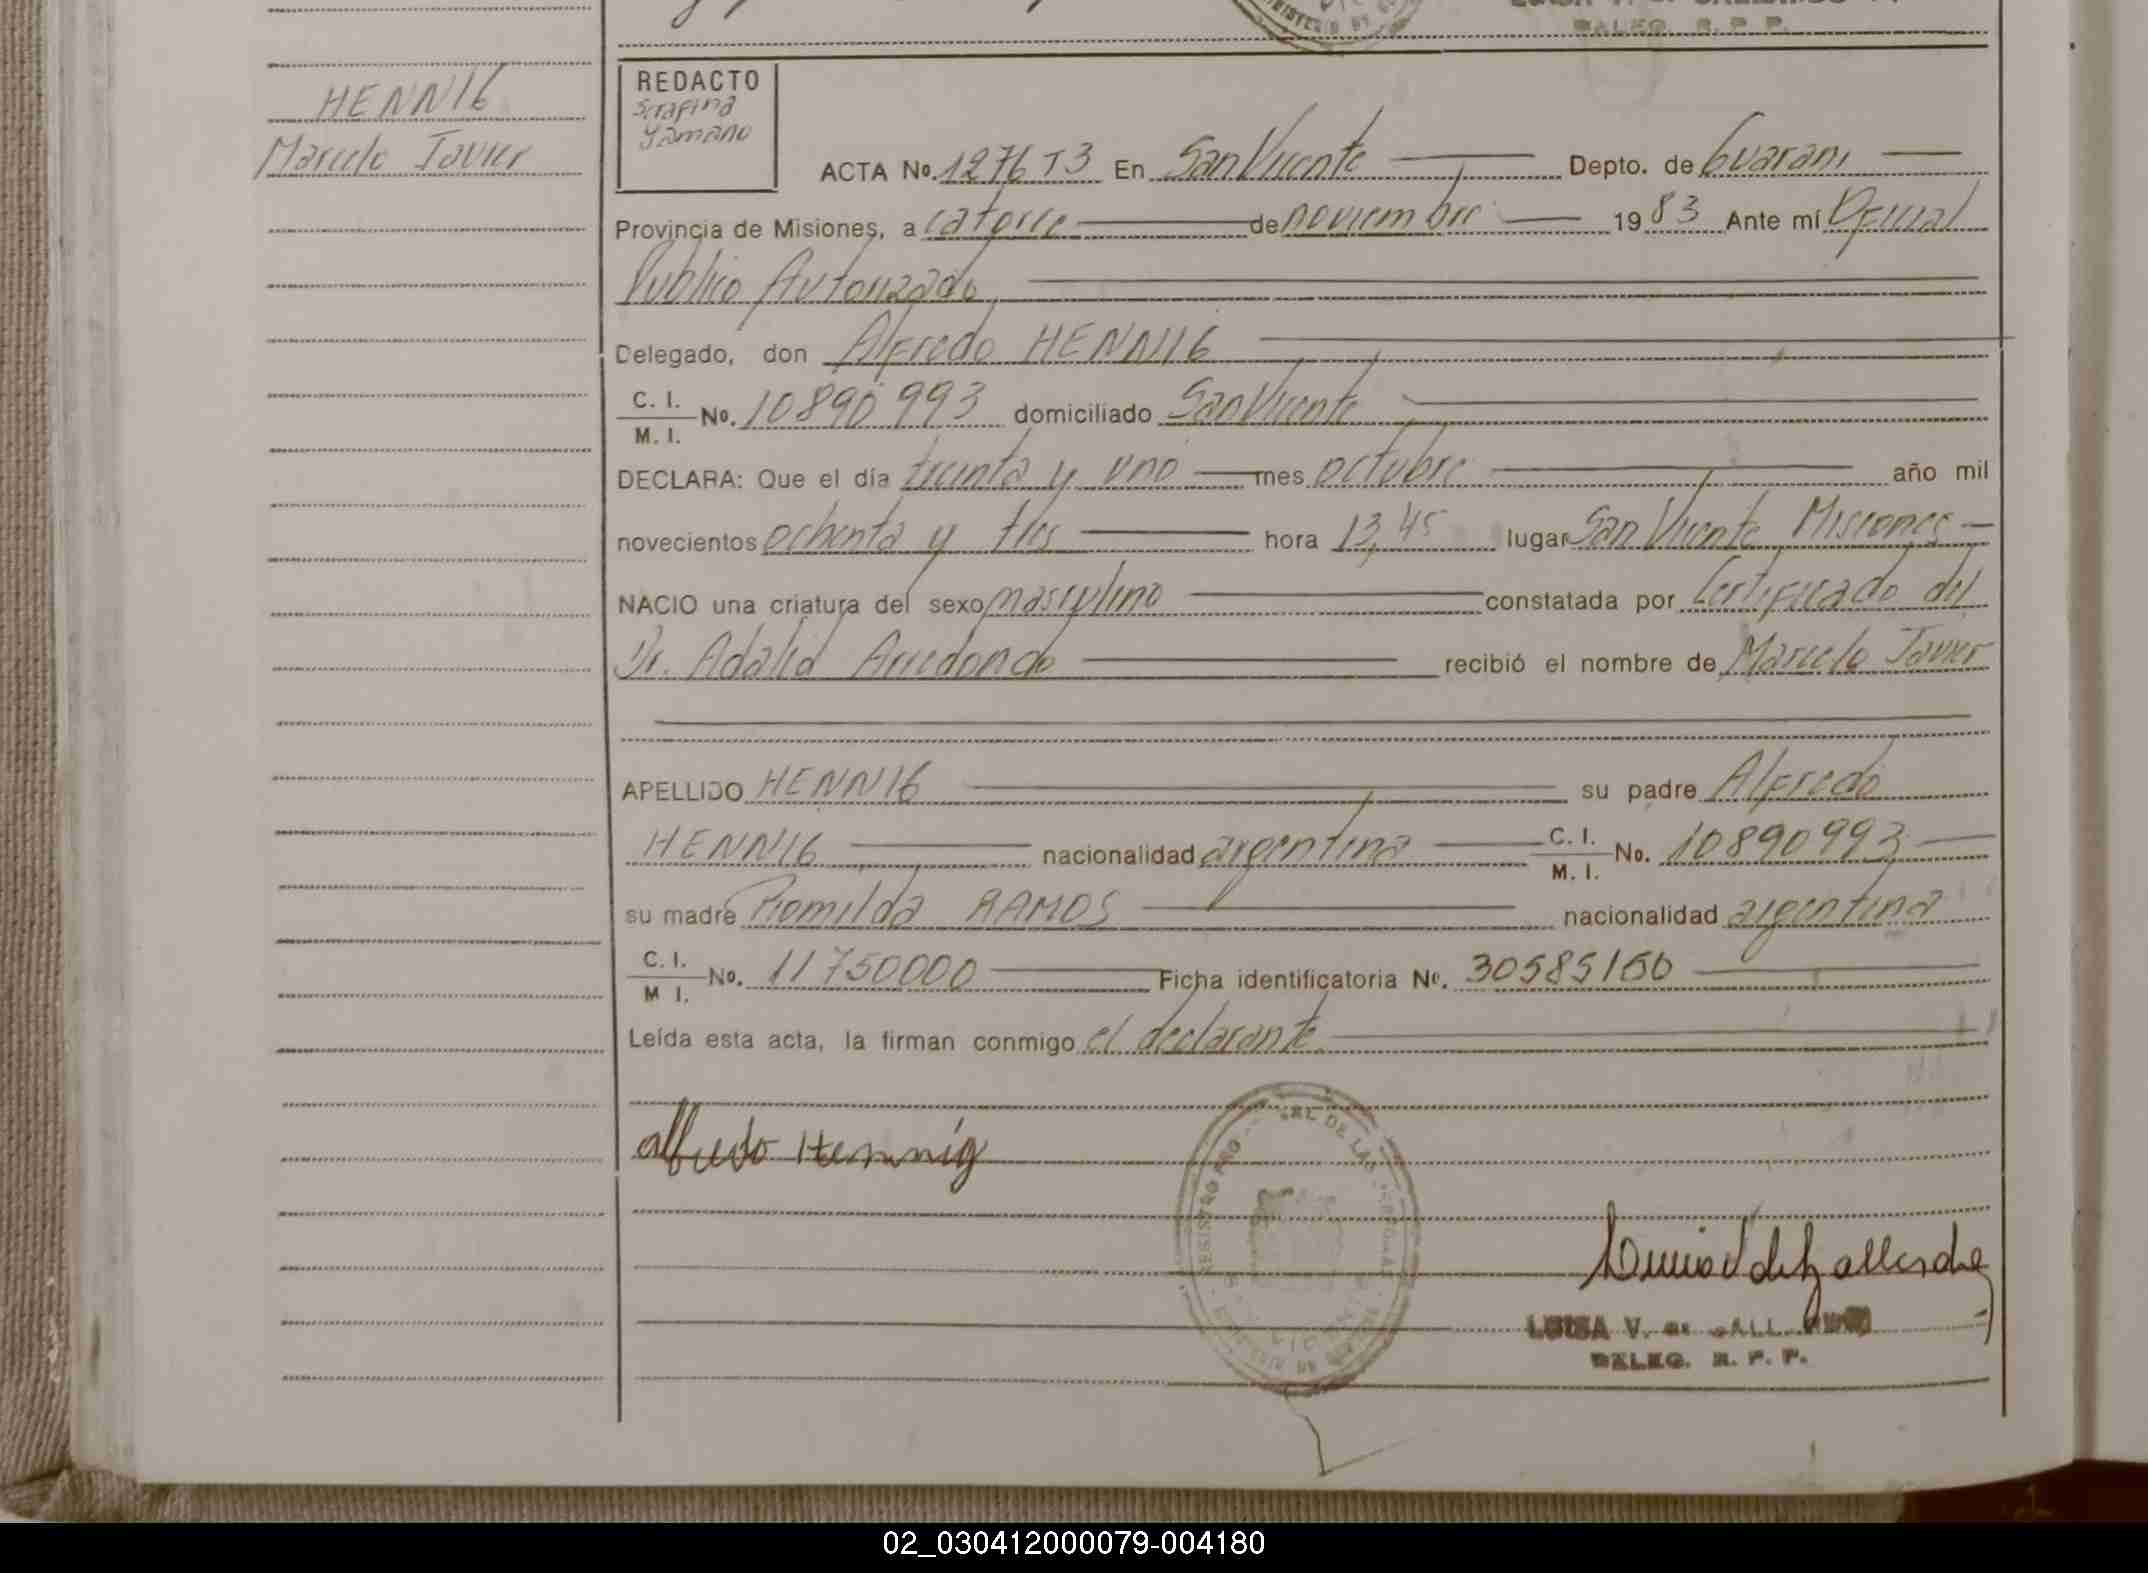 DELEG. R. P. P.
HENNIG
Marcelo Javier
REDACTO
Serafina
Yamano
ACTA No. 1276 T3 En San Vicente Depto. de Guarani
Provincia de Misiones, a catorce de noviembre 1983 Ante mí Oficial
Publico Autorizado
Delegado, don Alfredo HENNIG
C. I.
M. I. No. 10890993 domiciliado San Vicente
DECLARA: Que el día treinta y uno mes octubre año mil
novecientos ochenta y tres hora 13,45 lugar San Vicente Misiones
NACIO una criatura del sexo masculino constatada por Certificado del
Dr. Adalid Arredondo recibió el nombre de Marcelo Javier
APELLIDO HENNIG su padre Alfredo
HENNIG nacionalidad argentina C. I. M. I. No. 10890993
su madre Romilda RAMOS nacionalidad argentina
C. I. M I. No. 11750000 Ficha identificatoria No. 30585150
Leída esta acta, la firman conmigo el declarante
alfredo Hennig
REGISTRO DE LAS
LUISA V. DE GALLARDO
DELEG. R. P. P.
02_030412000079-004180